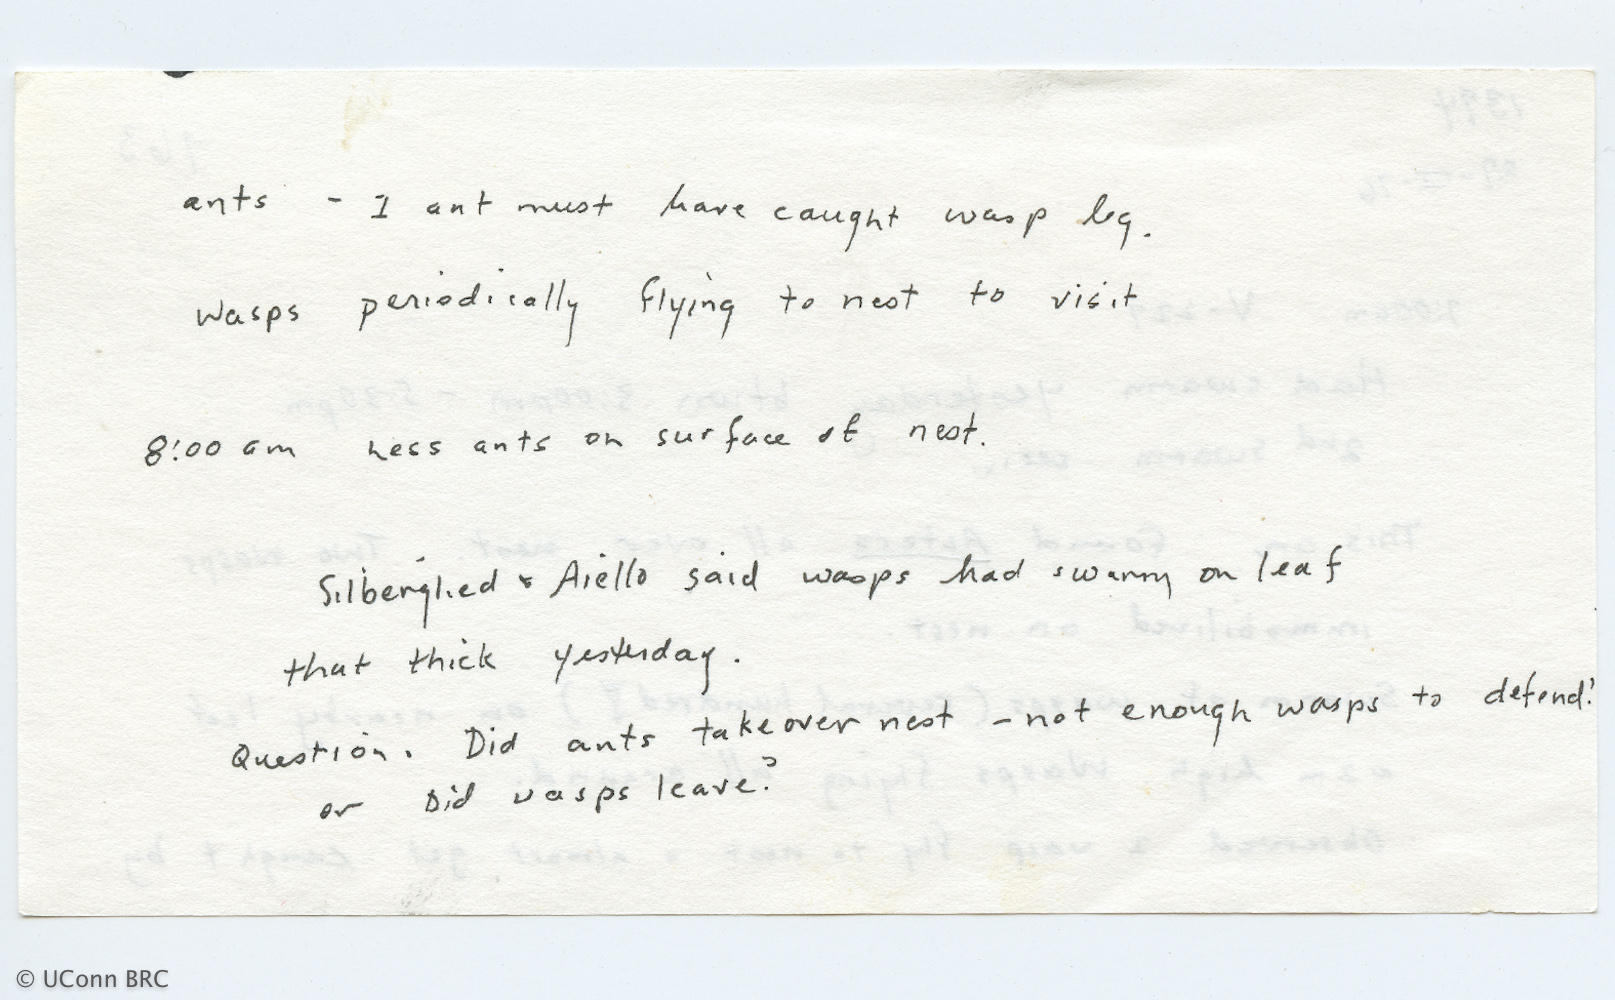 ants - 1 ant must have caught wasp leg.
Wasps periodically flying to nest to visit
8:00 am Less ants on surface of nest.
Silberglied & Aiello said wasps had swarm on leaf
that thick yesterday.
Question. Did ants takeover nest - not enough wasps to defend?
or Did wasps leave?
© UConn BRC